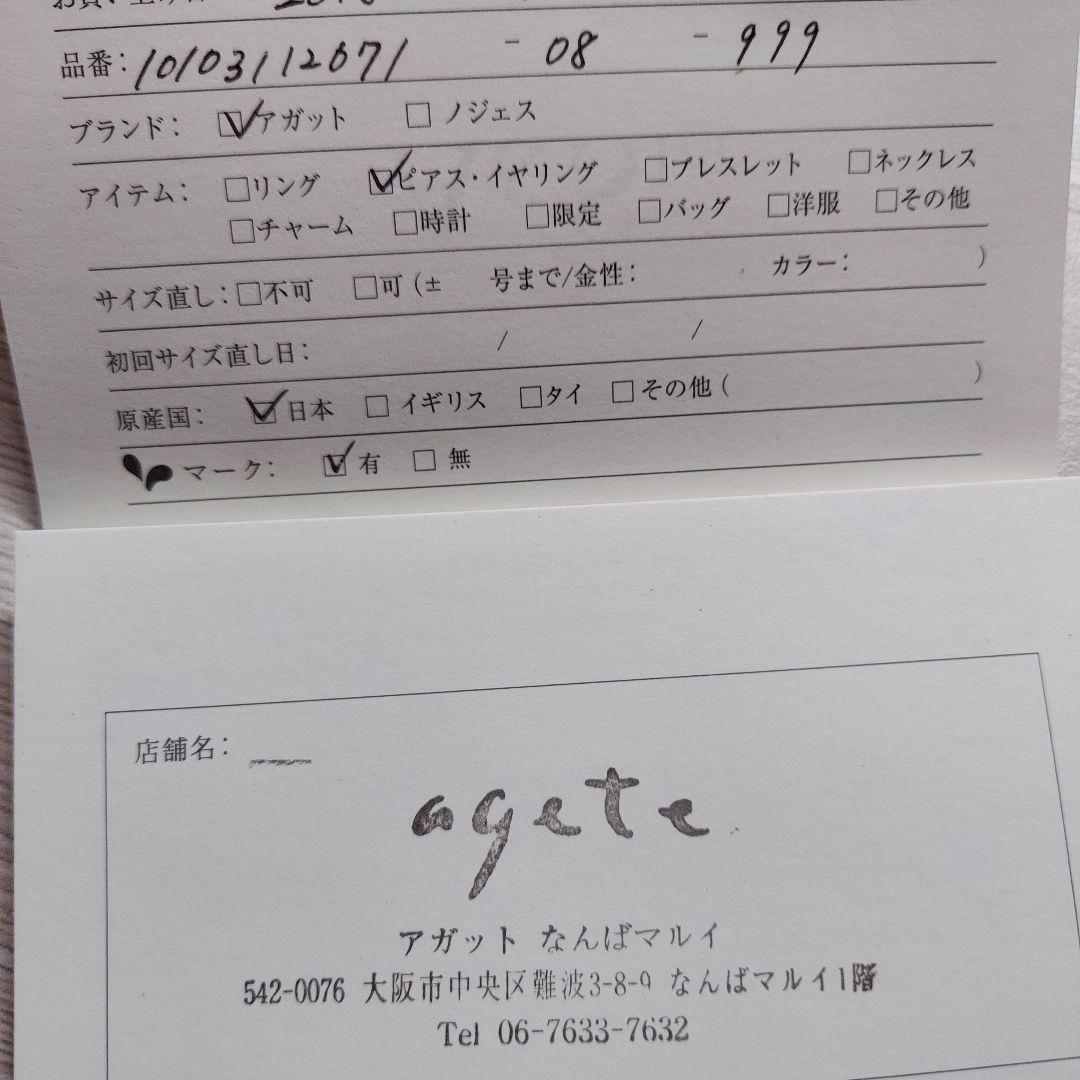 品番： 10103112671 - 08 - 999
ブランド： ☑アガット □ ノジェス
アイテム： □リング ☑ピアス・イヤリング □ブレスレット □ネックレス
□チャーム □時計 □限定 □バッグ □洋服 □その他
サイズ直し：□不可 □可（± 号まで/金性： カラー： ）
初回サイズ直し日： / /
原産国： ☑日本 □ イギリス □タイ □その他（ ）
マーク： ☑ 有 □ 無
店舗名：
agete
アガット なんばマルイ
542-0076 大阪市中央区難波3-8-9 なんばマルイ1階
Tel 06-7633-7632